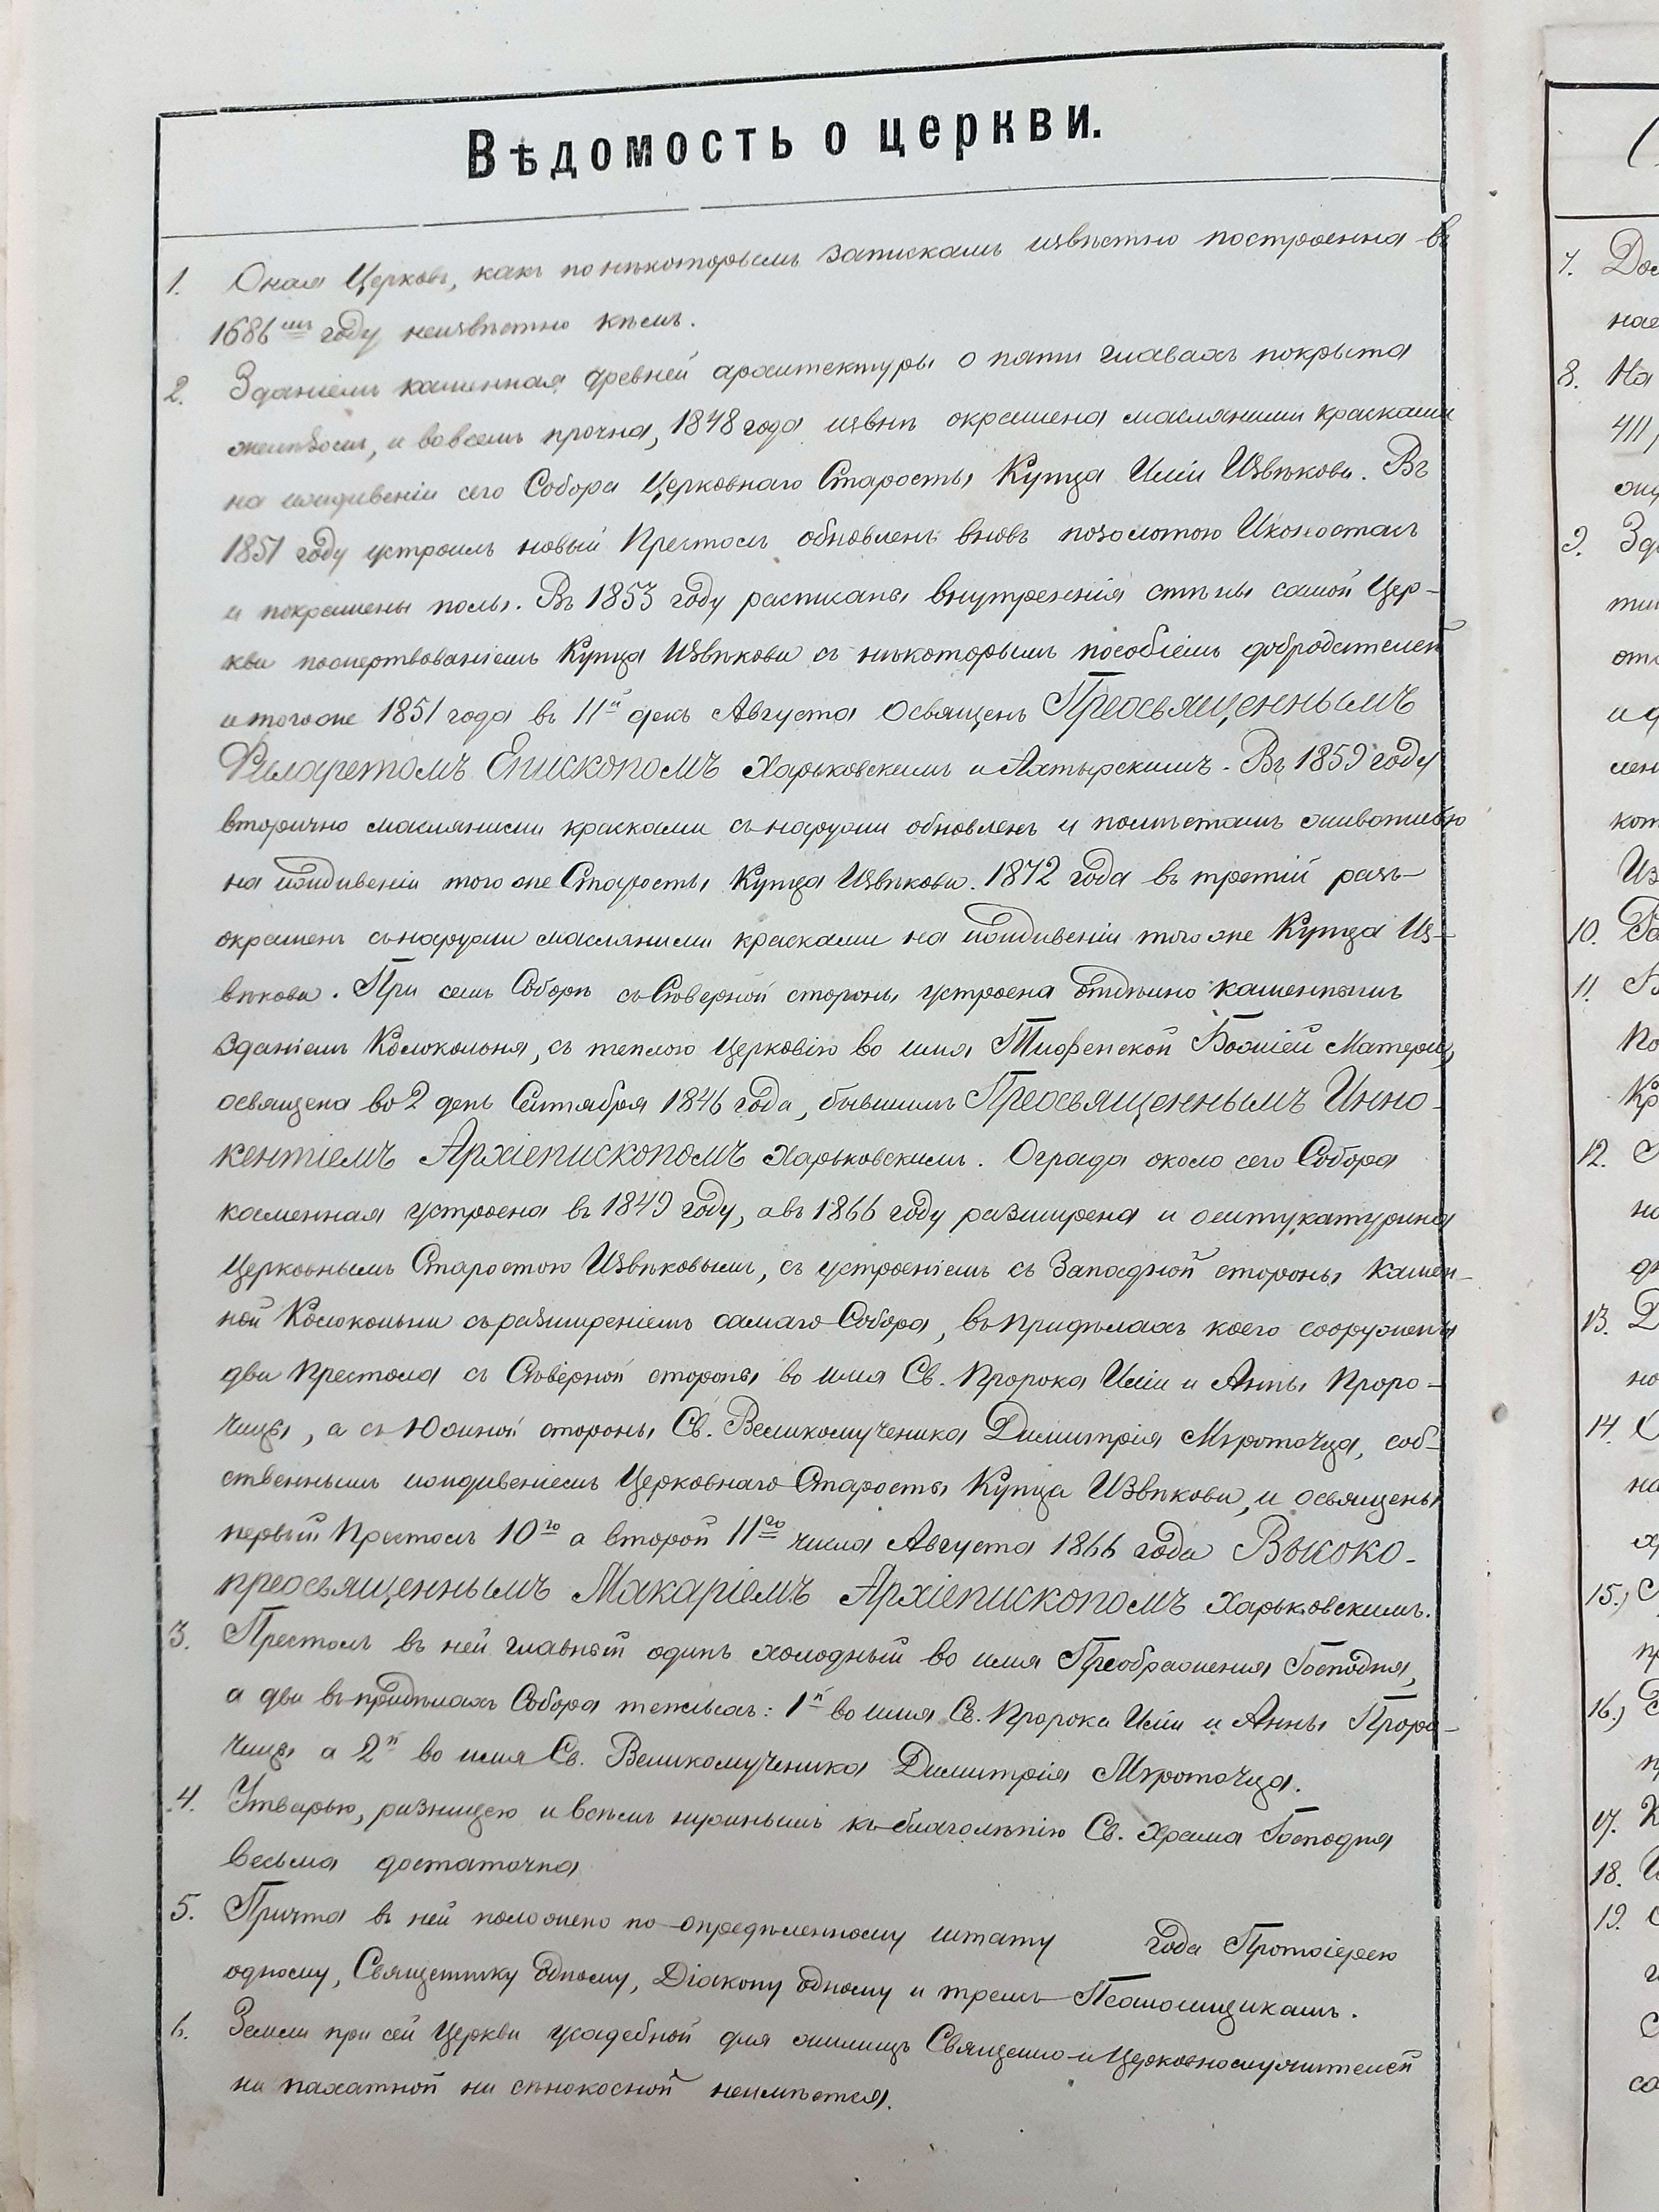 Вѣдомость о церкви.
1. Оная Церковь, какъ по нѣкоторымъ запискамъ извѣстно построенна въ
1686мъ году неизвѣстно кѣмъ.
2. Зданіемъ каменная древней архитектуры о пяти главахъ покрыта
желѣзомъ, и вовсемъ прочна, 1848 года извнѣ окрашена масляними красками
на иждивеніи сего Собора Церковнаго Старосты Купца Иліи Извѣкова. Въ
1851 году устроилъ новый Престолъ обновленъ вновъ позолотою Иконостасъ
и покрашены полы. Въ 1853 году расписаны внутренія стѣны самой Цер-
кви пожертвованіемъ Купца Извѣкова съ нѣкоторымъ пособіемъ добродѣтелей
итогоже 1851 года въ 11й день Августа Освященъ Преосвященнымъ
Филаретомъ Епископомъ Харьковскимъ и Ахтырскимъ. Въ 1859 году
вторично масляними красками снаружи обновленъ и помѣстамъ живописью
на иждивеніи того же Старосты Купца Извѣкова. 1872 года въ третій разъ
окрашенъ снаружи масляними красками на иждивеніи того же Купца Из-
вѣкова. При семъ Соборѣ съ Сѣверной стороны устроена отдѣльно каменнымъ
зданіемъ Колокольня, съ теплою Церковію во имя Тиофенской Божіей Матери,
освящена во 2 день Сентября 1846 года, бывшимъ Преосвященнымъ Инно-
кентіемъ Архіепископомъ Харьковскимъ. Ограда около сего Собора
каменная устроена въ 1849 году, а въ 1866 году разширена и оштукатурина
Церковнымъ Старостою Извѣковымъ, съ устроеніемъ съ Западной стороны Камен-
ной Колокольни съ разширеніемъ самаго Собора, въ придѣлахъ коего сооружены
два Престола съ Сѣверной стороны во имя Св. Пророка Иліи и Анны Проро-
чицы, а съ Южной стороны Св. Великомученика Димитрія Мѵроточца, соб-
ственнымъ иждивеніемъ Церковнаго Старосты Купца Извѣкова, и освящены
первый Престолъ 10го а второй 11го числа Августа 1866 года Высоко-
преосвященнымъ Макаріемъ Архіепископомъ Харьковскимъ.
3. Престолъ въ ней главный одинъ холодный во имя Преображенія Господня,
а два въ придѣлахъ Собора теплыхъ: 1й во имя Св. Пророка Иліи и Анны Проро-
чицы а 2й во имя Св. Великомученика Димитрія Мѵроточца.
4. Утварью, ризницею и всѣмъ нужнымъ къ благолѣпію Св. Храма Господня
весьма достаточна
5. Причта въ ней положено по опредѣленному штату года Протоіерею
одному, Священнику одному, Діакону одному и тремъ Псаломщикамъ.
6. Земли при сей Церкви усадебной для жилищъ Священно-и Церковнослужителей
ни пахатной ни сѣнокосной неимѣется.
7. До
8. На
411,
9. Зд
10.
11.
12.
13.
14.
15.)
16.)
17.
18.
19.